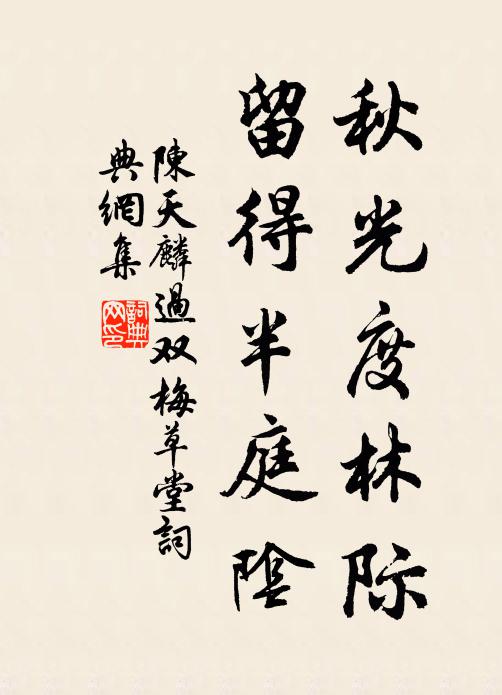 秋光度林际
留得半庭陰
陳天麟過双梅草堂詞
典網集
詞典
网印